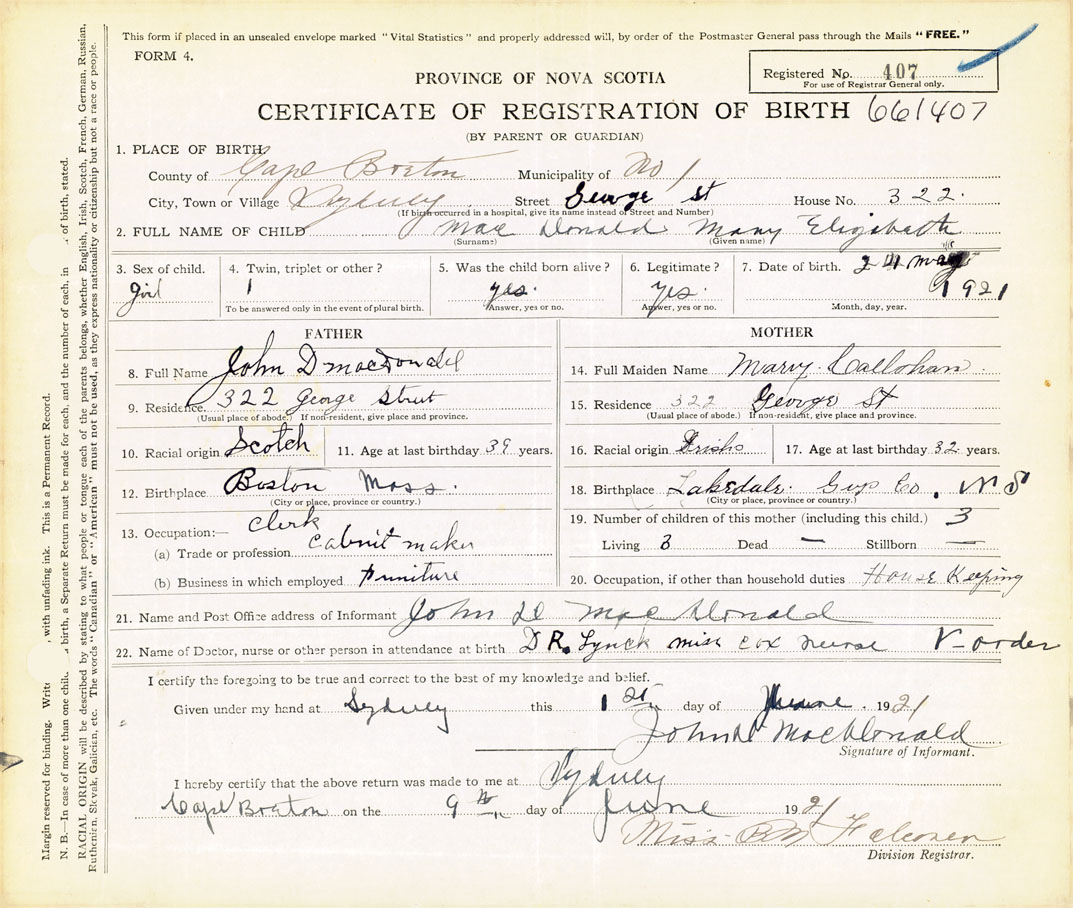 This form if placed in an unsealed envelope marked "Vital Statistics" and properly addressed will, by order of the Postmaster General pass through the Mails "FREE."
FORM 4.
Registered No. 407
For use of Registrar General only.
PROVINCE OF NOVA SCOTIA
CERTIFICATE OF REGISTRATION OF BIRTH 661407
(BY PARENT OR GUARDIAN)
1. PLACE OF BIRTH
County of Cape Breton Municipality of No 1
City, Town or Village Sydney Street George St House No. 322.
(If birth occurred in a hospital, give its name instead of Street and Number)
2. FULL NAME OF CHILD Mac Donald Mary Elizabeth
(Surname) (Given name)
3. Sex of child. 4. Twin, triplet or other? 5. Was the child born alive? 6. Legitimate? 7. Date of birth. 24 may
girl 1 yes. yes. 1921
To be answered only in the event of plural birth. Answer, yes or no. Answer, yes or no. Month, day, year.
FATHER
8. Full Name John D macDonald
9. Residence. 322 George Street
(Usual place of abode.) If non-resident, give place and province.
10. Racial origin Scotch 11. Age at last birthday 39 years.
12. Birthplace Boston Mass.
(City or place, province or country.)
13. Occupation:— Clerk
(a) Trade or profession Cabnit maker
(b) Business in which employed Furniture
MOTHER
14. Full Maiden Name Mary Callohan.
15. Residence 322 George St
(Usual place of abode.) If non-resident, give place and province.
16. Racial origin Irish 17. Age at last birthday 32 years.
18. Birthplace Lakedale. Guys Co. N S
(City or place, province or country.)
19. Number of children of this mother (including this child.) 3
Living 3 Dead — Stillborn —
20. Occupation, if other than household duties House Keeping
21. Name and Post Office address of Informant John D MacDonald
22. Name of Doctor, nurse or other person in attendance at birth DR. Lynck miss cox nurse V-order
I certify the foregoing to be true and correct to the best of my knowledge and belief.
Given under my hand at Sydney this 1 st day of June. 1921
John D MacDonald
Signature of Informant.
I hereby certify that the above return was made to me at Sydney
Cape Breton on the 9 th day of June 1921
Miss B M Falconer
Division Registrar.
Margin reserved for binding. Write with unfading ink. This is a Permanent Record.
N. B.—In case of more than one birth, a Separate Return must be made for each, and the number of each, in of birth, stated.
RACIAL ORIGIN will be described by stating to what people or tongue each of the parents belongs, whether English, Irish, Scotch, French, German, Russian,
Ruthenian, Slovak, Galician, etc. The words "Canadian" or "American" must not be used, as they express nationality or citizenship but not a race or people.